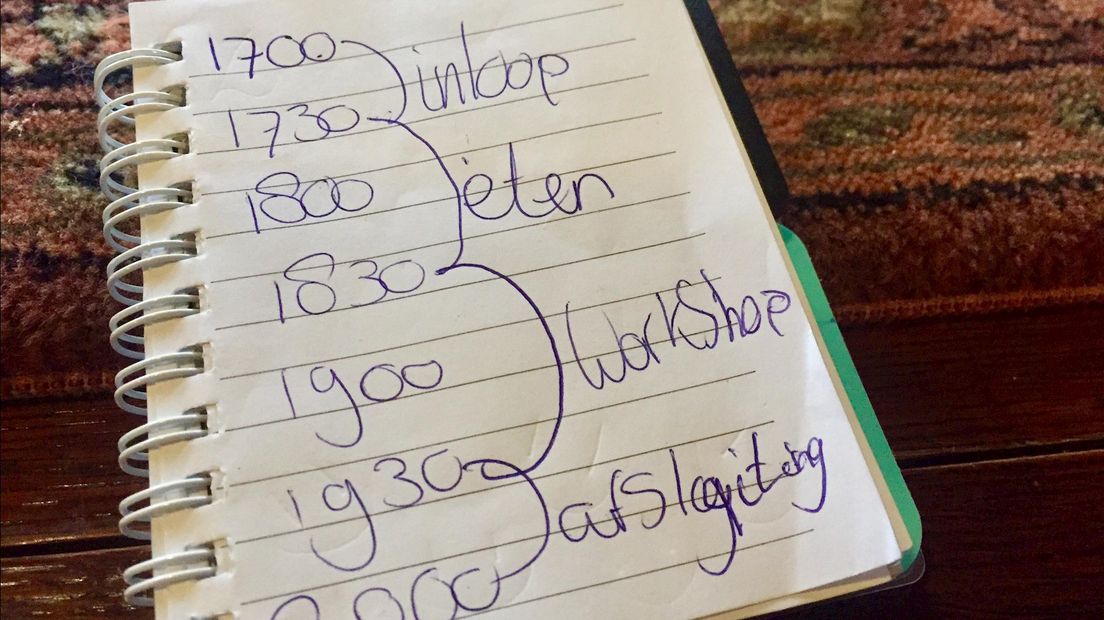 1700 inloop
1730
1800 eten
1830
1900 WorkShop
1930 afslqiting
2000